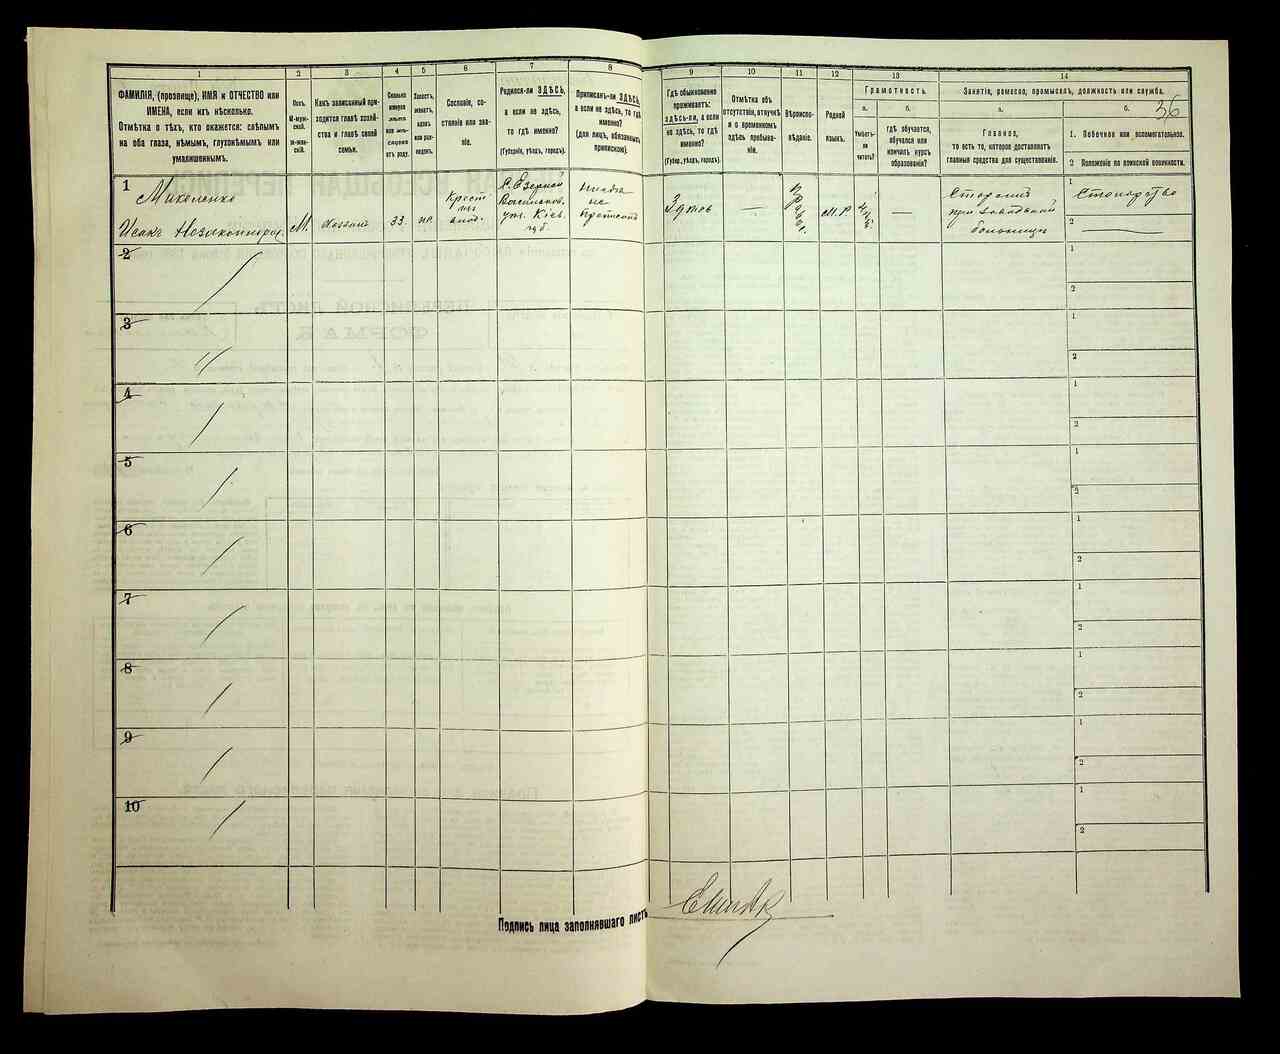 1
2
3
4
5
6
7
8
9
10
11
12
13
14
36
ФАМИЛІЯ, (прозвище), ИМЯ и ОТЧЕСТВО или
ИМЕНА, если ихъ нѣсколько.
Отмѣтка о тѣхъ, кто окажется: слѣпымъ
на оба глаза, нѣмымъ, глухонѣмымъ или
умалишеннымъ.
Полъ.
М-муж-
ской.
Ж-жен-
скій.
Какъ записанный при-
ходится главѣ хозяй-
ства и главѣ своей
семьи.
Сколько
минуло
лѣтъ
или мѣс.
отъ роду.
Холостъ,
женатъ,
вдовъ
или раз-
веденъ.
Сословіе, со-
стояніе или зва-
ніе.
Родился-ли ЗДѢСЬ,
а если не здѣсь,
то гдѣ именно?
(Губернія, уѣздъ, городъ).
Приписанъ-ли ЗДѢСЬ,
а если не здѣсь, то гдѣ
именно?
(для лицъ, обязанныхъ
припиской).
Гдѣ обыкновенно
проживаетъ:
здѣсь-ли, а если
не здѣсь, то гдѣ
именно?
(Губер., уѣздъ, городъ).
Отмѣтка объ
отсутствіи, отлучкѣ
и о временномъ
здѣсь пребыва-
ніи.
Вѣроиспо-
вѣданіе.
Родной
языкъ.
Грамотность.
а.
Умѣетъ-
ли
читать?
б.
гдѣ обучается,
обучался или
кончилъ курсъ
образованія?
Занятіе, ремесло, промыселъ, должность или служба.
а.
Главное,
то есть то, которое доставляетъ
главныя средства для существованія.
б.
1. Побочное или вспомогательное.
2 Положеніе по воинской повинности.
1
Миколенко
Исакъ
М.
Хозяинъ
33
Крест
С. Озерной
уѣз. Кіев.
губ.
Здѣсь
—
М. Р
—
Сторожъ
при Заводской
больницы
1
2
2
1
2
3
1
2
4
1
2
5
1
2
6
1
2
7
1
2
8
1
2
9
1
2
10
1
2
Подпись лица заполнявшаго листъ